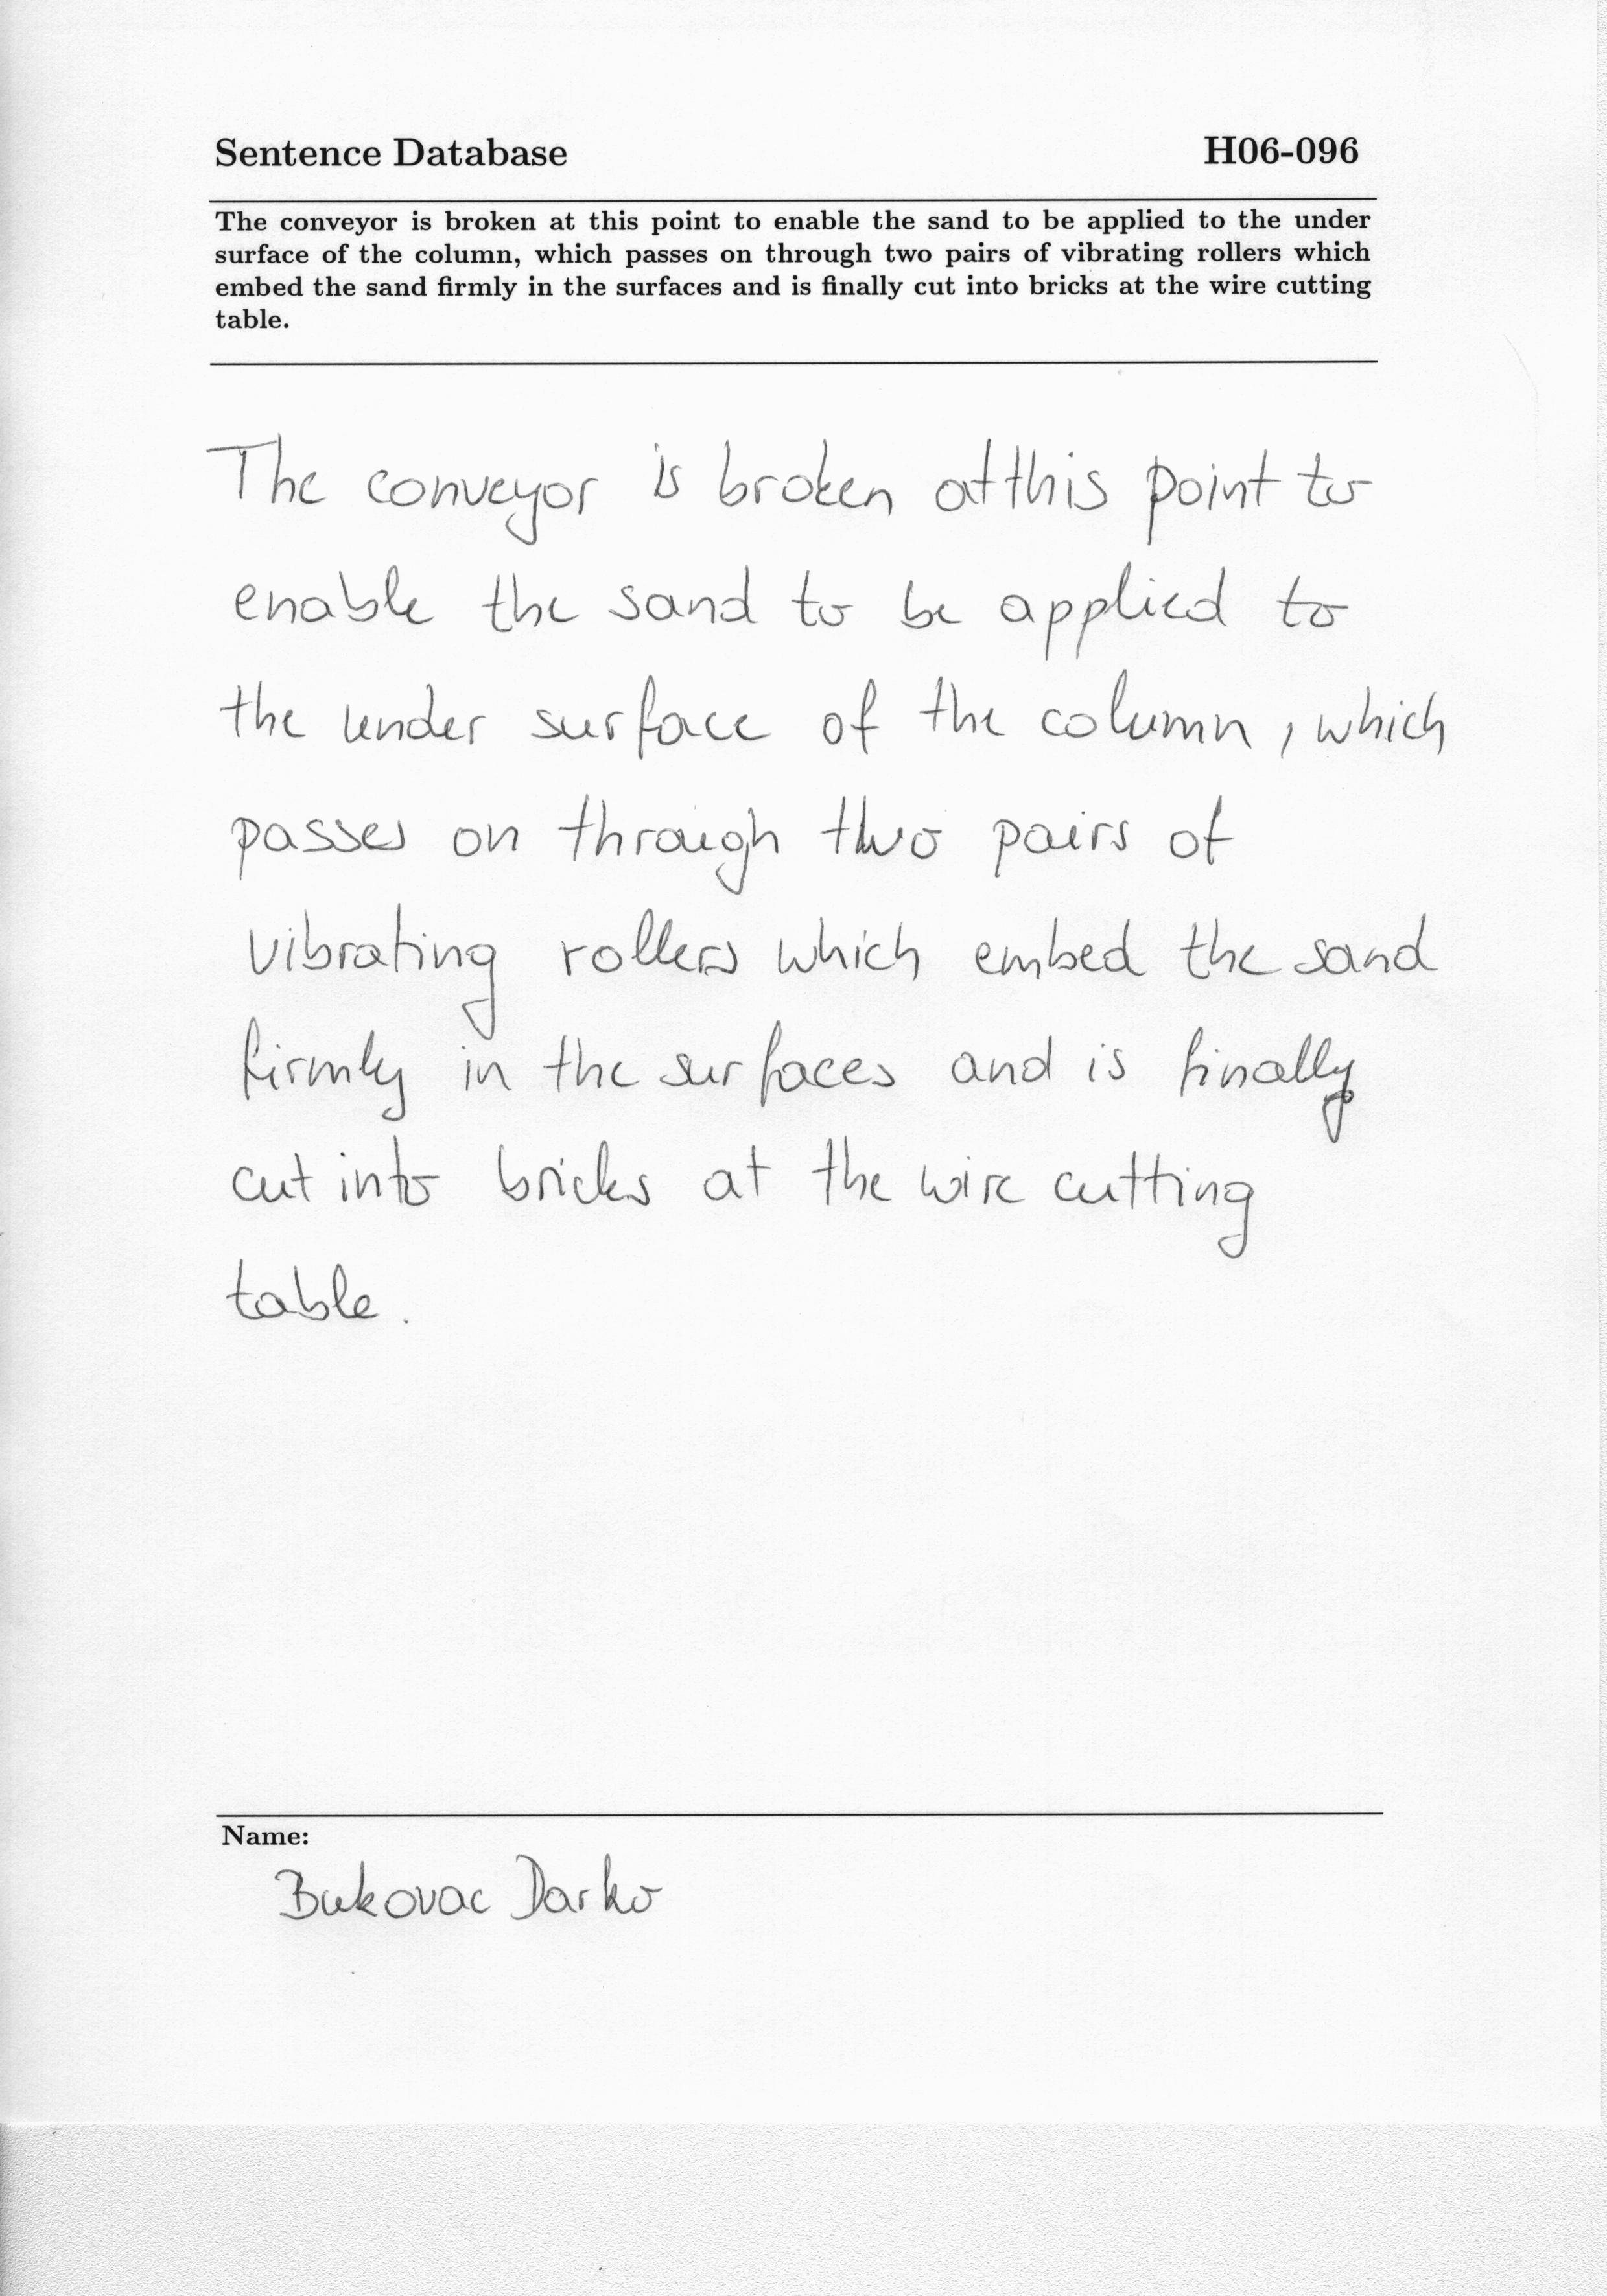 Sentence Database H06-096
The conveyor is broken at this point to enable the sand to be applied to the under
surface of the column, which passes on through two pairs of vibrating rollers which
embed the sand firmly in the surfaces and is finally cut into bricks at the wire cutting
table.
The conveyor is broken at this point to
enable the sand to be applied to
the under surface of the column, which
passes on through two pairs of
vibrating rollers which embed the sand
firmly in the surfaces and is finally
cut into bricks at the wire cutting
table.
Name:
Bukovac Darko